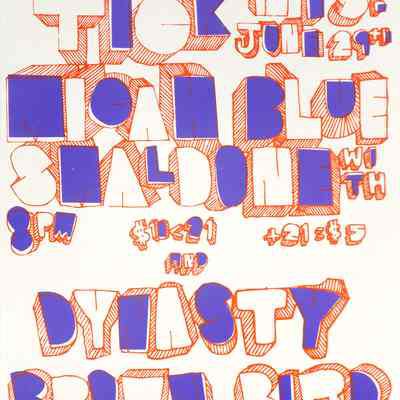 TICK
JUNE 29TH
MICAH BLUE
SMALDONE WITH
8PM $10<21 +21:$5
AND
DYNASTY
BROWN BIRD